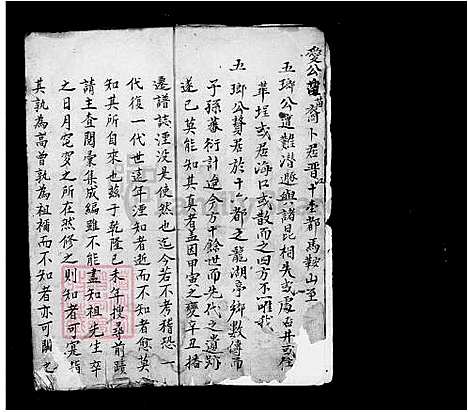 愛公苗裔卜居晋江十杰都馬鞍山至
五瑯公遭難潜遯與諸昆相失或處古井或住
華埕或居海口或散而之四方不惟我
五瑯公贅居於十七都之龍湖亭鄉數傳而
子孫蕃衍計迨今方十餘世而先代之遺跡
遂已莫能知其真者盖因甲寅之變辛丑播
遷譜誌湮没是使然也迄今若不考稽恐
代復一代世遠年湮知者逝而不知者愈莫
知其所自來也兹于乾隆己未年搜尋前蹟
請主查閱彙集成編雖不能盡知祖先生卒
之日月電窆之所在然修之則知者可寔指
其孰為高曾孰為祖禰而不知者亦可闕